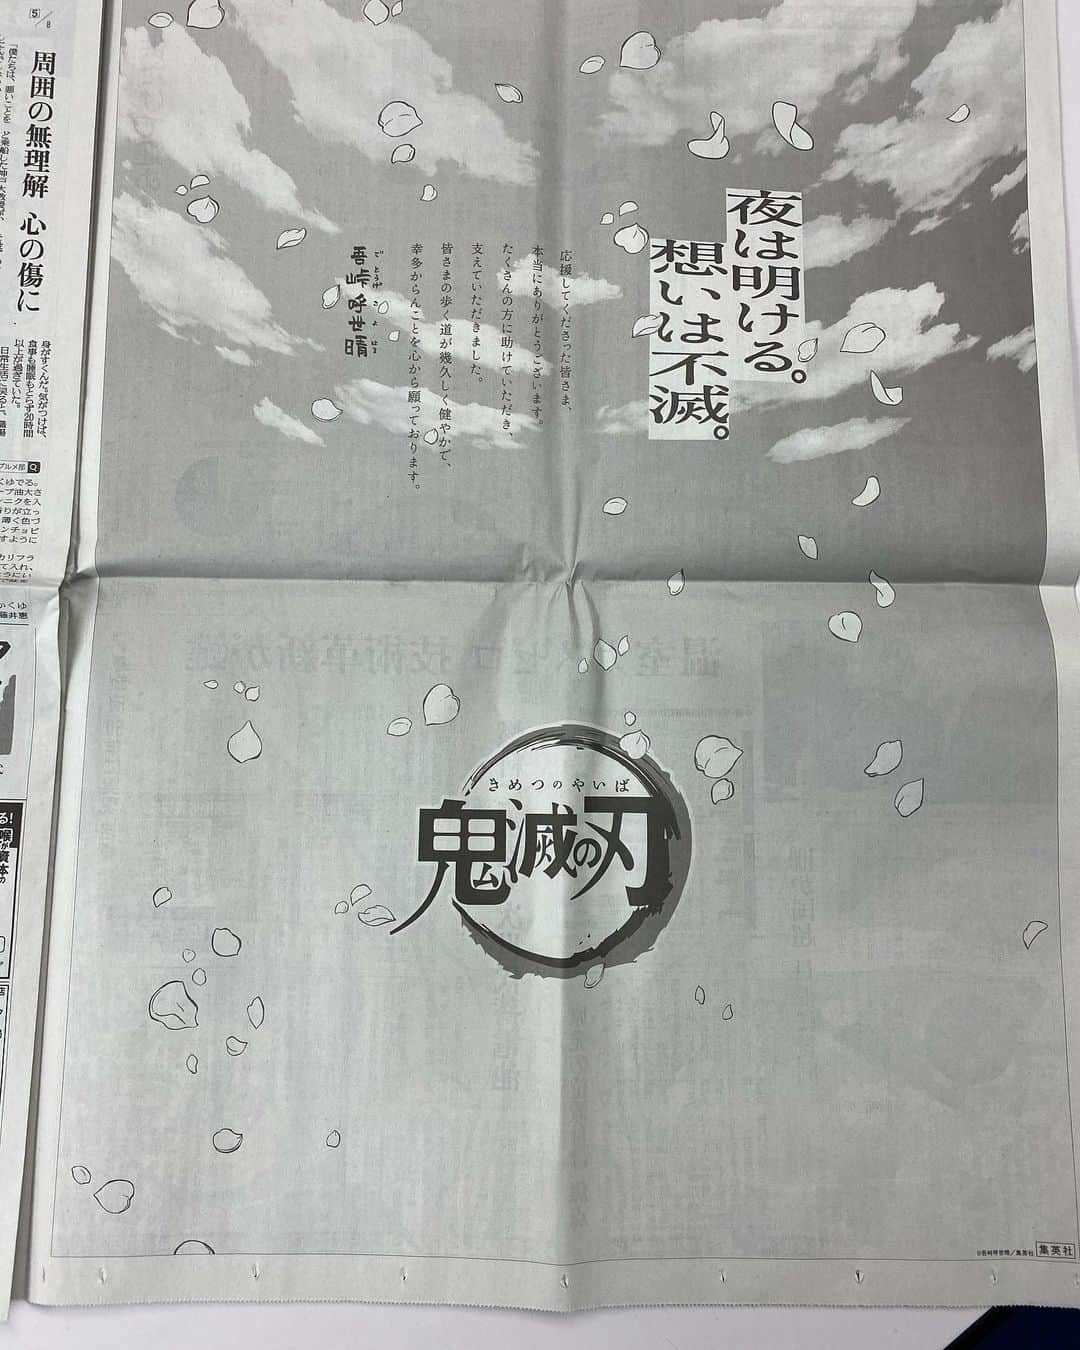 夜は明ける。
想いは不滅。
応援してくださった皆さま、
本当にありがとうございます。
たくさんの方に助けていただき、
支えていただきました。
皆さまの歩く道が幾久しく健やかで、
幸多からんことを心から願っております。
ごとうげ こよはる
吾峠呼世晴
きめつのやいば
鬼滅の刃
©吾峠呼世晴／集英社
集英社
5/8
周囲の無理解 心の傷に
身がすくんだ。気がつけば、
食事も睡眠もとらず20時間
以上が過ぎていた。